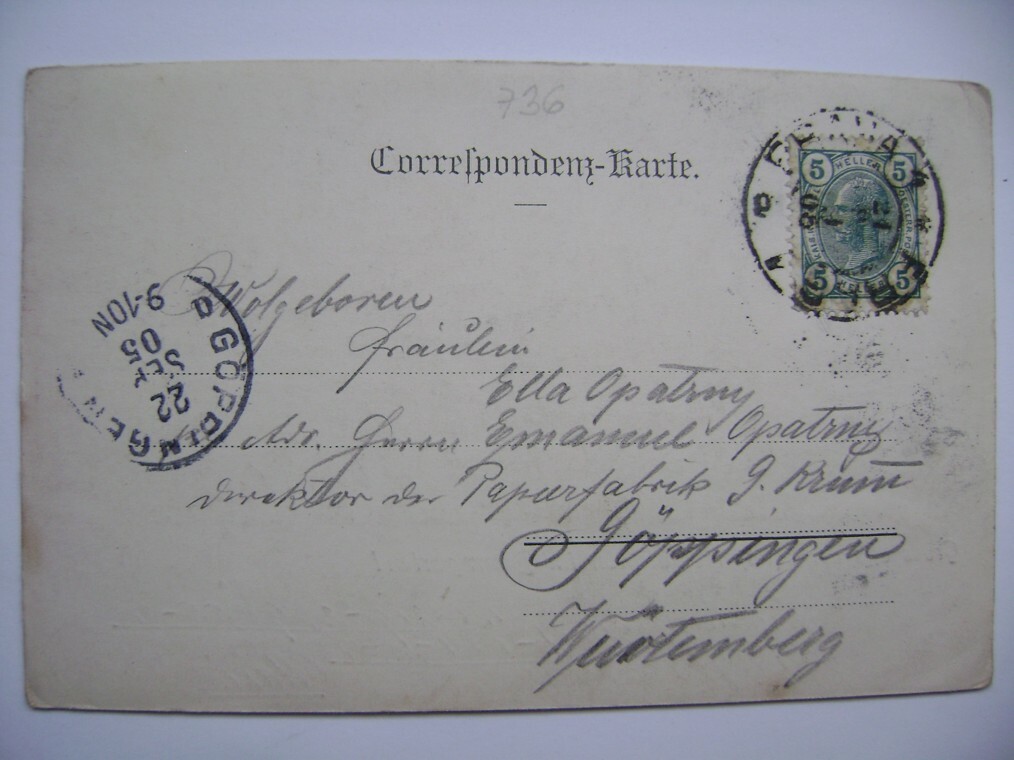 736
Correspondenz-Karte.
5 HELLER 5
5 HELLER 5
GÖPPINGEN
22
SEP
05
9-10N
Wolgeboren
Fräulein
Ella Opatrny
Adr. Herrn Emanuel Opatrny
Direktor der Papierfabrik G. Krum
Göppingen
Würtemberg